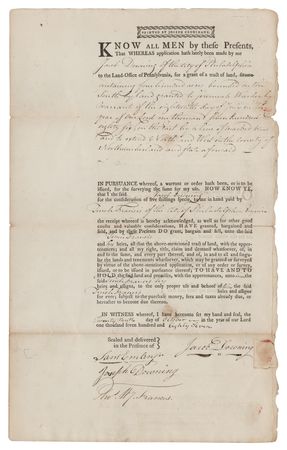 PRINTED BY JOSEPH CRUKSHANK.
KNOW ALL MEN by these Presents,
That WHEREAS application hath lately been made by me
Jacob Downing of the city of Philadelphia
to the Land-Office of Pennsylvania, for a grant of a tract of land,
containing four hundred acres bounded on the
South by land granted to
warrant of the eighteenth day of in the
year of our Lord one thousand seven hundred
eighty
and to extend North and West in the county of
Northumberland and state aforesaid
IN PURSUANCE whereof, a warrant or order hath been, or is to be
issued, for the surveying the same for my use. NOW KNOW YE,
that I the said Jacob Downing
for the consideration of five shillings specie, to me in hand paid by
Tench Francis of the city of Philadelphia
the receipt whereof is hereby acknowledged, as well as for other good
causes and valuable considerations, HAVE granted, bargained
and sold, and by these Presents DO grant, bargain and sell, unto the said
Tench Francis
and his heirs, all that the above-mentioned tract of land, with the appurtenances;
and all my right, title, claim and demand whatsoever, of, in
and to the same, and every part thereof, and of, in and to all and singular
the lands and tenements whatsoever, which may be granted or surveyed
by virtue of the above-mentioned application, or of any order or warrant
issued, or to be issued in pursuance thereof; TO HAVE AND TO
HOLD the said land and premises, with the appurtenances, unto the
said Tench Francis his
heirs and assigns, to the only proper use and behoof of the said
Tench Francis his heirs and assigns
for ever; subject to the purchase money, fees and taxes already due, or
hereafter to become due thereon.
IN WITNESS whereof, I have hereunto set my hand and seal, the
day of October in the year of our Lord
one thousand seven hundred and Eighty Seven
Sealed and delivered
in the Presence of
Jacob Downing
Saml Emlen
Joseph Downing
Francis